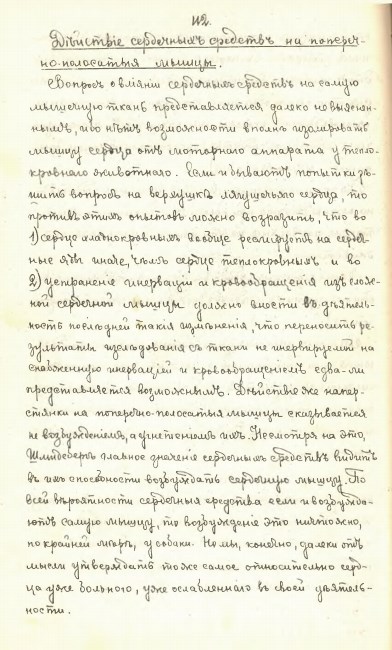 112.
Дѣйствіе сердечныхъ средствъ на попереч-
но-полосатыя мышцы.
Вопросъ о вліяніи сердечныхъ средствъ на самую
мышечную ткань представляется далеко не выяснен-
нымъ, ибо нѣтъ возможности вполнѣ изолировать
мышцу сердца отъ моторнаго аппарата у тепло-
кровнаго животнаго. Если и бываютъ попытки рѣ-
шить вопросъ на верхушкѣ лягушечьяго сердца, то
противъ этихъ опытовъ можно возразить, что во
1) сердце хладнокровныхъ вообще реагируетъ на сердеч-
ные яды иначе, чѣмъ сердце теплокровныхъ и во
2) устраненіе иннерваціи и кровообращенія изъ слож-
ной сердечной мышцы должно внести въ дѣятель-
ность послѣдней такія измѣненія, что переносить ре-
зультаты изслѣдованія съ ткани не иннервируемой на
снабженную иннерваціей и кровообращеніемъ едва-ли
представляется возможнымъ. Дѣйствіе же напер-
стянки на поперечно-полосатыя мышцы сказывается
не возбужденіемъ, а угнетеніемъ ихъ. Несмотря на это,
Шмидебергъ главное значеніе сердечныхъ средствъ видитъ
въ ихъ способности возбуждать сердечную мышцу. По
всей вѣроятности сердечныя средства если и возбужда-
ютъ самую мышцу, то возбужденіе это ничтожно,
по крайней мѣрѣ, у собаки. Но мы, конечно, далеки отъ
мысли утверждать тоже самое относительно серд-
ца уже больного, уже ослабленнаго въ своей дѣятель-
ности.